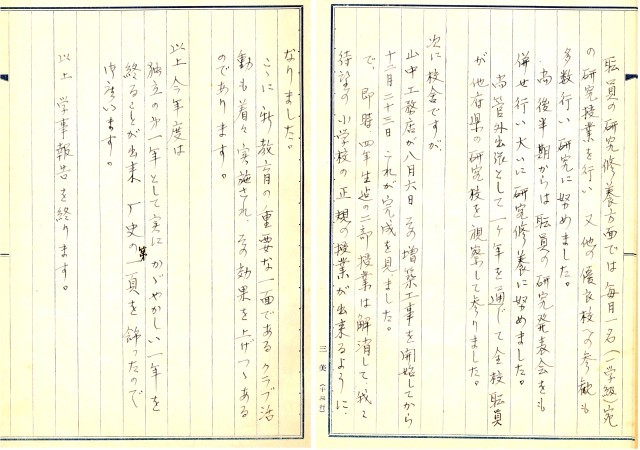 職員の研究修養方面では毎月一名(一学級)宛
の研究授業を行い 又他の優良校への参観も
多数行い 研究に努めました。
尚後半期からは職員の研究発表会をも
併せ行い 大いに研究修養に努めました。
尚管外出張として一ヶ年を通じて全校職員
が他府県の研究校を視察して参りました。
次に校舎ですが
山中工務店が八月六日 その増築工事を開始してから
十二月二十三日 これが完成を見ました。
で、即時、四年生迄の二部授業は解消して、我々
待望の小学校の正規の授業が出来るように、
なりました。
こゝに 新教育の重要な一面であるクラブ活
動も着々実施され、その効果を上げつゝある
のであります。
以上 今年度は
独立の第一年として実にかゞやかしい一年を
終ることが出来 歴史の第一頁を飾ったので
ございます。
以上 学事報告を終ります。
三美